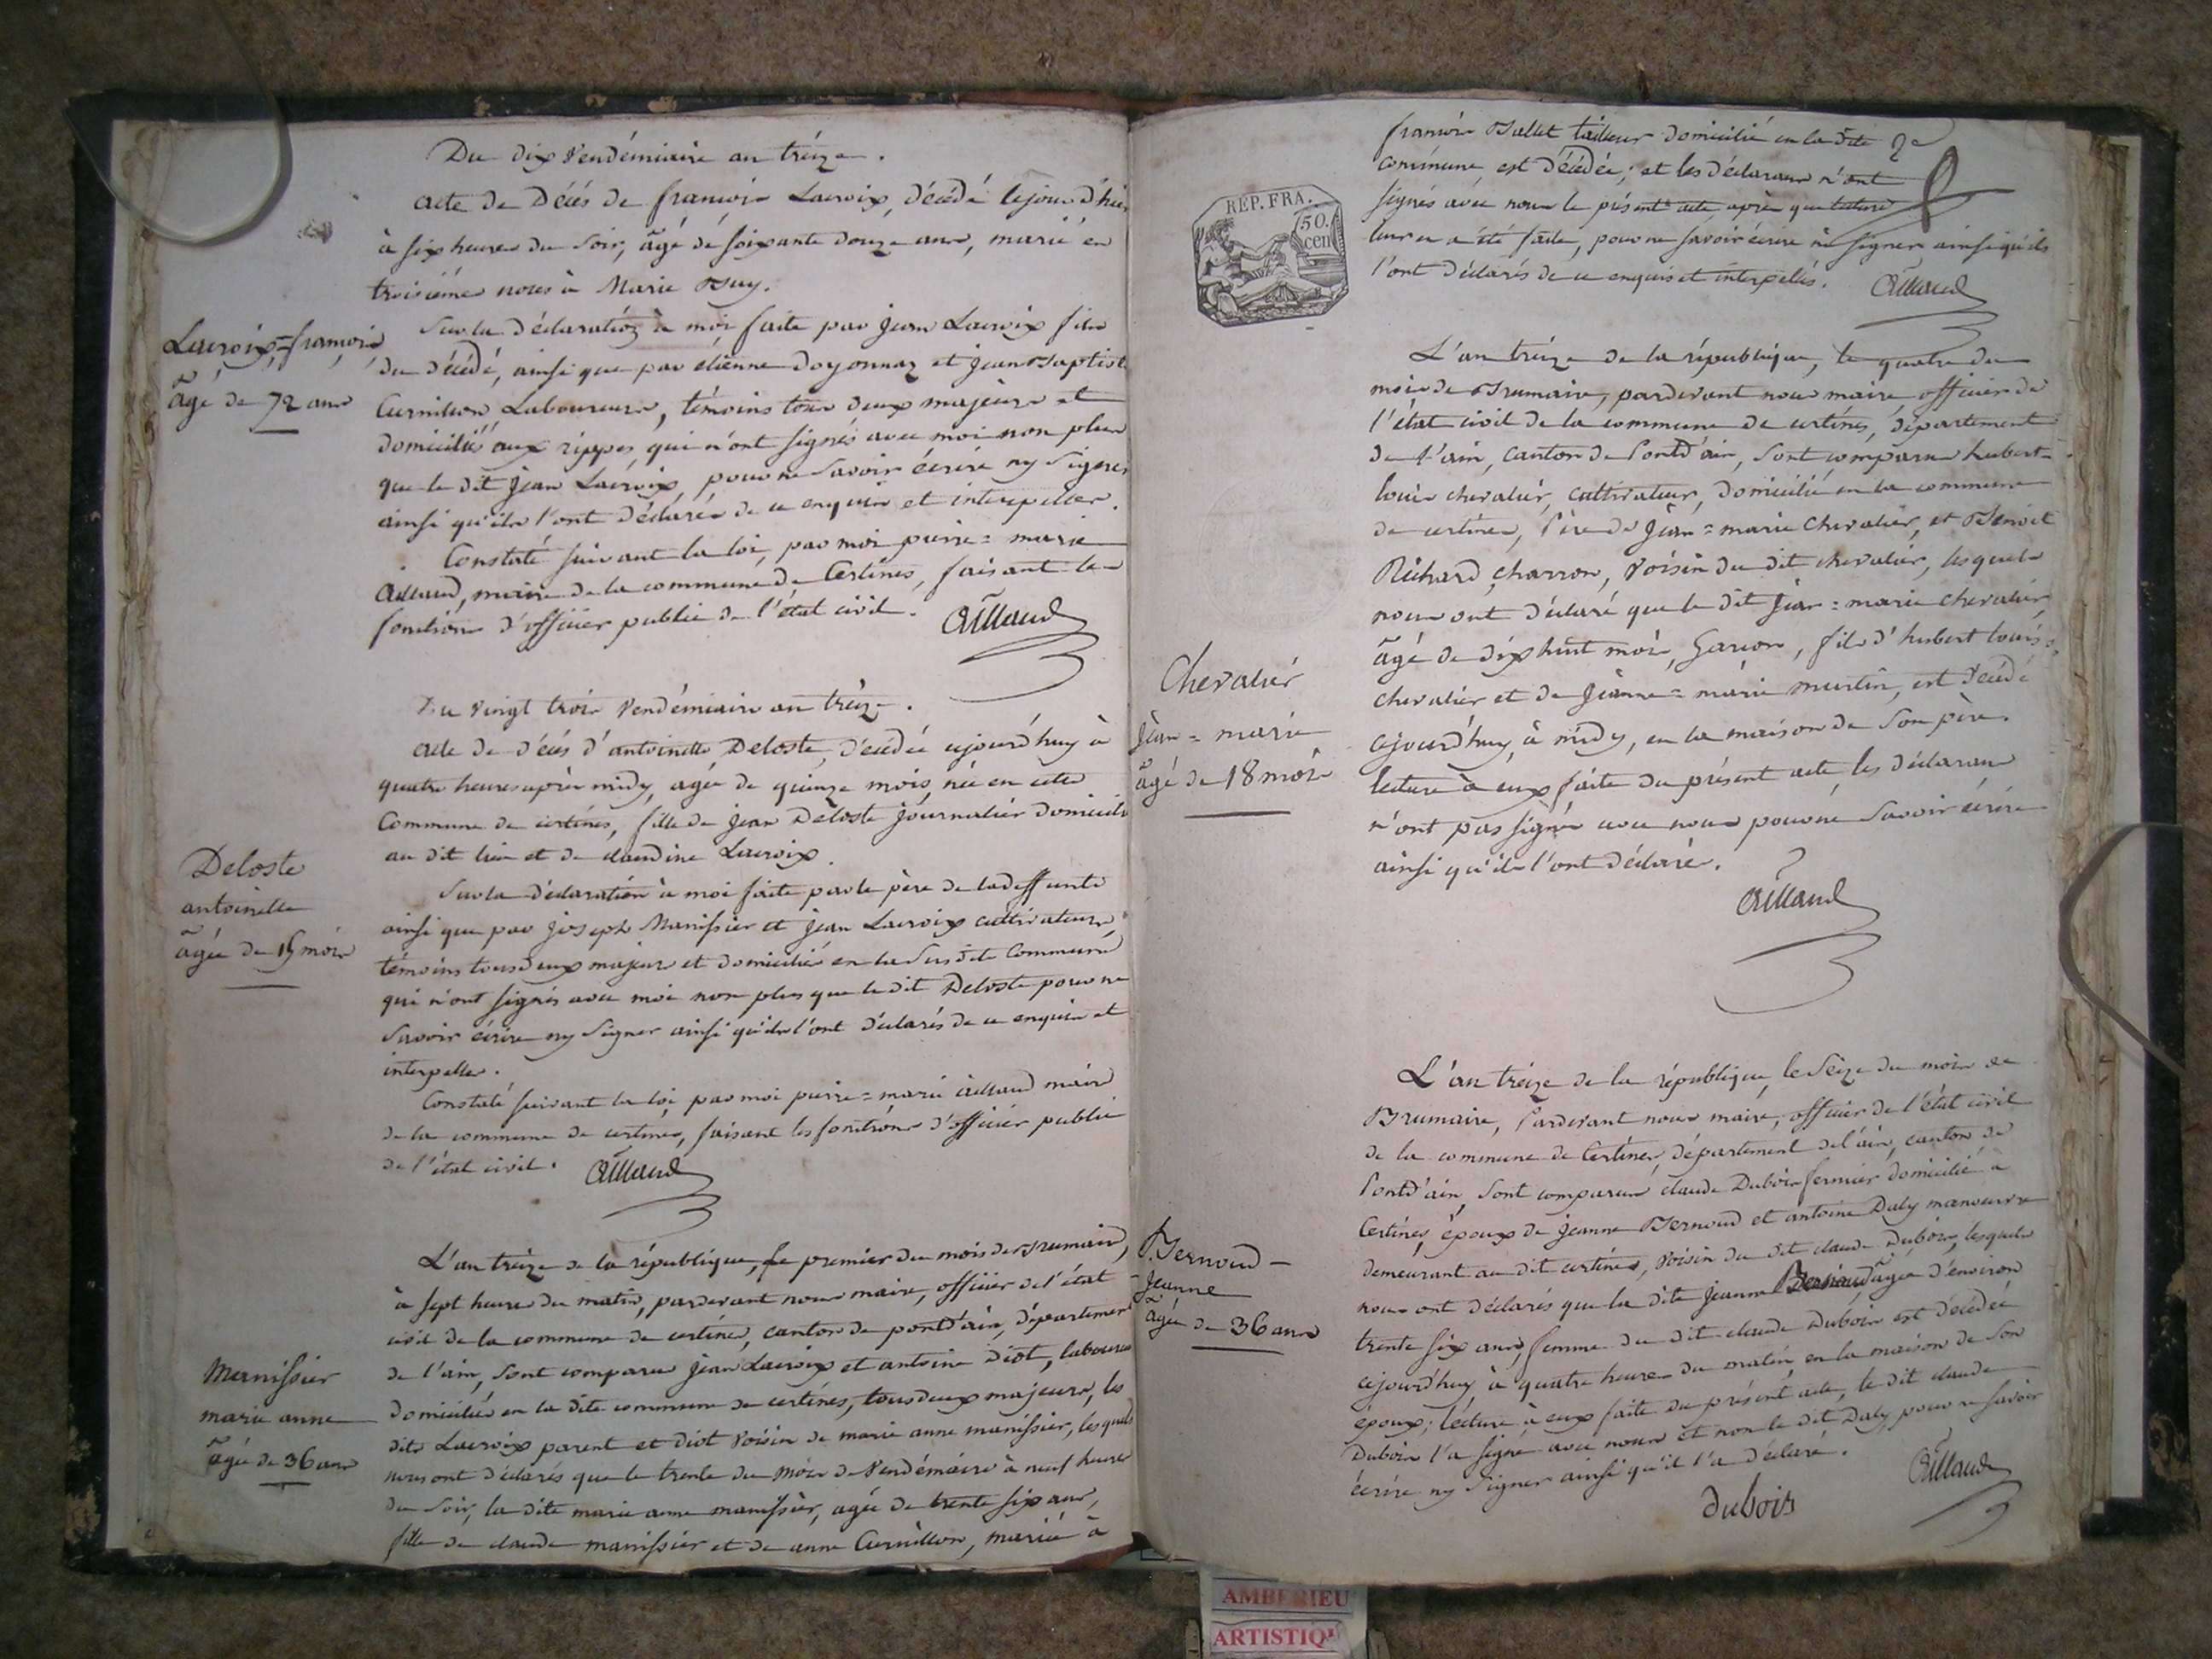 Du dix Vendémiaire an treize.
acte de Décés de françois Lacroix, décédé le jour d'hier
à six heures du soir, âgé de soixante douze ans, marié en
troisième noces à Marie Buy.
Lacroix = françois
âgé de 72 ans
Sur la déclaration à moi faite par jean Lacroix fils
du décédé, ainsi que par étienne Doyonnaz et jean Baptiste
Curnillon Laboureurs, témoins tous deux majeurs et
domiciliés aux rippes, qui n'ont signés avec moi non plus
que le dit jean Lacroix, pour ne savoir écrire ny signer
ainsi qu'ils l'ont déclarés de ce enquis et interpeller.
Constaté suivant la loi, par moi pierre = marie
aillaud, maire de la commune de Certines, faisant les
fonctions d'officier public de l'état civil. Aillaud
Du vingt trois Vendémiaire an treize.
acte de décés d'antoinette Deloste, décédée cejourd'huy à
quatre heures après midy, agée de quinze mois, née en cette
Commune de certines, fille de jean Deloste journalier domicilié
au dit lieu et de claudine Lacroix.
Deloste
antoinette
âgée de 15 mois
Sur la déclaration à moi faite par le père de la deffunte
ainsi que par joseph Manissier et jean Lacroix cultivateurs
témoins tous deux majeurs et domiciliés en la susdite Commune
qui n'ont signés avec moi non plus que le dit Deloste pour ne
savoir écrire ny signer ainsi qu'ils l'ont déclarés de ce enquis et
interpeller.
Constaté suivant la loi, par moi pierre = marie aillaud maire
de la commune de certines, faisant les fonctions d'officier public
de l'état civil. Aillaud
L'an treize de la république, le premier du mois de Brumaire,
à sept heures du matin, pardevant nous maire, officier de l'état
civil de la commune de certines, canton de pontd'ain, département
de l'ain, sont comparus jean Lacroix et antoine Diot, laboureurs
domiciliés en la dite commune de certines, tous deux majeurs, les
dits Lacroix parent et diot Voisin de marie anne manissier, lesquels
nous ont déclarés que le trente du mois de Vendémiaire à neuf heures
du soir, la dite marie anne manissier, agée de trente six ans,
fille de claude manissier et de anne Curnillon, mariée à
Manissier
marie anne
âgée de 36 ans
françois Ballet tailleur domicilié en la dite
commune, est décédée; et les déclarans n'ont
signés avec nous le présent acte, après que lecture
leur en a été faite, pour ne savoir écrire ni signer ainsi qu'ils
l'ont déclarés de ce enquis et interpellés. Aillaud
REP. FRA.
50.
cen
L'an treize de la république, le quatre du
mois de Brumaire, pardevant nous maire officier de
l'état civil de la commune de certines, département
de l'ain, canton de Pontd'ain, sont comparus hubert =
louis chevalier, cultivateur, domicilié en la commune
de certines, Père de jean = marie chevalier, et Benoit
Richard, charron, Voisin du dit chevalier, lesquels
nous ont déclaré que le dit jean = marie chevalier
âgé de dix huit mois, Garçon, fils d'hubert louis
chevalier et de jeanne = marie martin, est décédé
cejourd'huy à midy, en la maison de son père.
lecture à eux faite du présent acte, les déclarans
n'ont pas signés avec nous pour ne savoir écrire
ainsi qu'ils l'ont déclaré.
Aillaud
Chevalier
jean = marie
âgé de 18 mois
L'an treize de la république, le seize du mois de
Brumaire, Pardevant nous maire, officier de l'état civil
de la commune de Certines, département de l'ain, canton de
Pontd'ain, sont comparus claude Dubois fermier domicilié à
Certines, époux de jeanne Bernoud et antoine Daly manoeuvre
demeurant au dit certines, Voisin du dit claude Dubois, lesquels
nous ont déclarés que la dite jeanne Bernoud âgée d'environ
trente six ans, femme du dit claude Dubois est décédée
cejourd'huy à quatre heures du matin, en la maison de son
époux; lecture à eux faite du présent acte, le dit claude
Dubois l'a signé avec nous et non le dit Daly pour ne savoir
écrire ny signer ainsi qu'il l'a déclaré.
Aillaud
dubois
Bernoud =
jeanne
âgée de 36 ans
AMBERIEU
ARTISTIQU